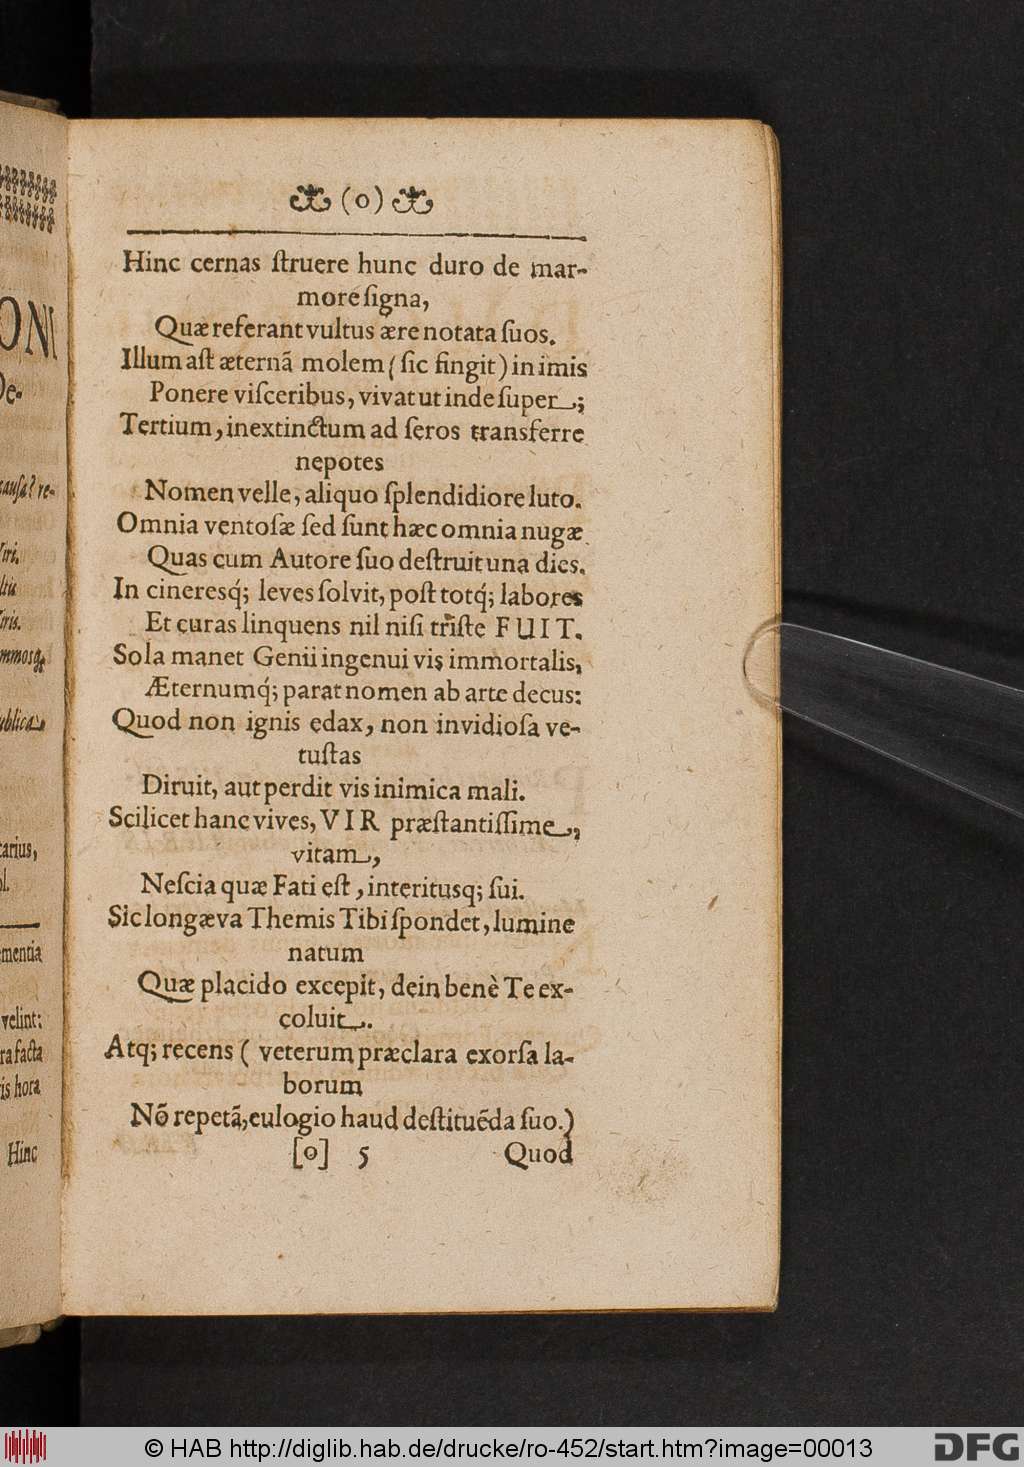 ONI
De-
causa? re-
Viri.
Viris.
ublica
tarius,
ol.
mentia
velint:
ra facta
is hora
Hinc
(o)
Hinc cernas ſtruere hunc duro de mar-
more ſigna,
Quæ referant vultus ære notata ſuos.
Illum aſt æternã molem (ſic fingit) in imis
Ponere viſceribus, vivat ut inde ſuper;
Tertium, inextinctum ad ſeros transferre
nepotes
Nomen velle, aliquo ſplendidiore luto.
Omnia ventoſæ ſed ſunt hæc omnia nugæ
Quas cum Autore ſuo deſtruit una dies.
In cineresq́; leves ſolvit, poſt totq́; labores
Et curas linquens nil niſi triſte FUIT.
Sola manet Genii ingenui vis immortalis,
Æternumq́; parat nomen ab arte decus:
Quod non ignis edax, non invidioſa ve-
tuſtas
Diruit, aut perdit vis inimica mali.
Scilicet hanc vives, VIR præſtantiſſime,
vitam,
Neſcia quæ Fati eſt, interitusq; ſui.
Sic longæva Themis Tibi ſpondet, lumine
natum
Quæ placido excepit, dein benè Te ex-
coluit.
Atq; recens ( veterum præclara exorſa la-
borum
Nõ repetã, eulogio haud deſtituẽda ſuo.)
[o] 5 Quod
© HAB http://diglib.hab.de/drucke/ro-452/start.htm?image=00013
DFG